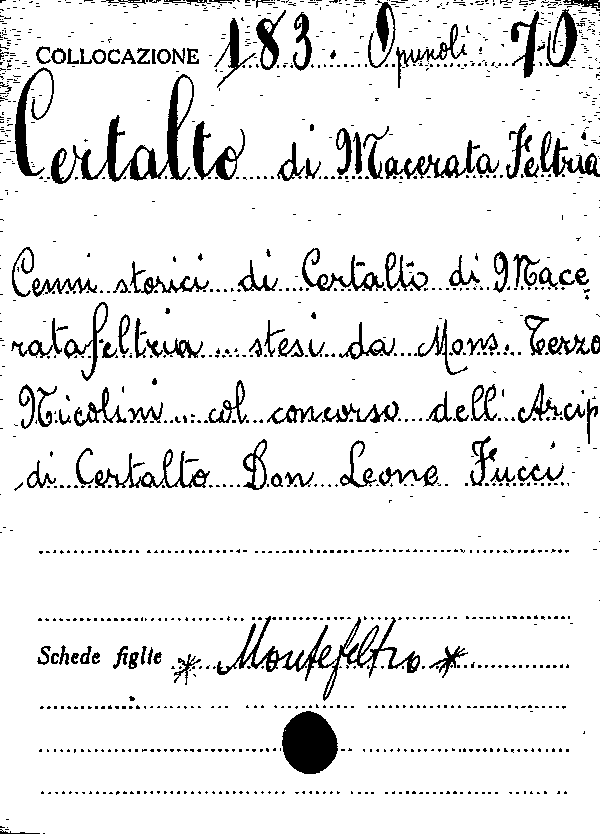 COLLOCAZIONE 183. Opuscoli. 70
Certalto di Macerata Feltria
Cenni storici di Certalto di Mace
ratafeltria ... stesi da Mons. Terzo
Nicolini ... col concorso dell' Arcip
di Certalto Don Leone Fucci
Schede figlie * Montefeltro *